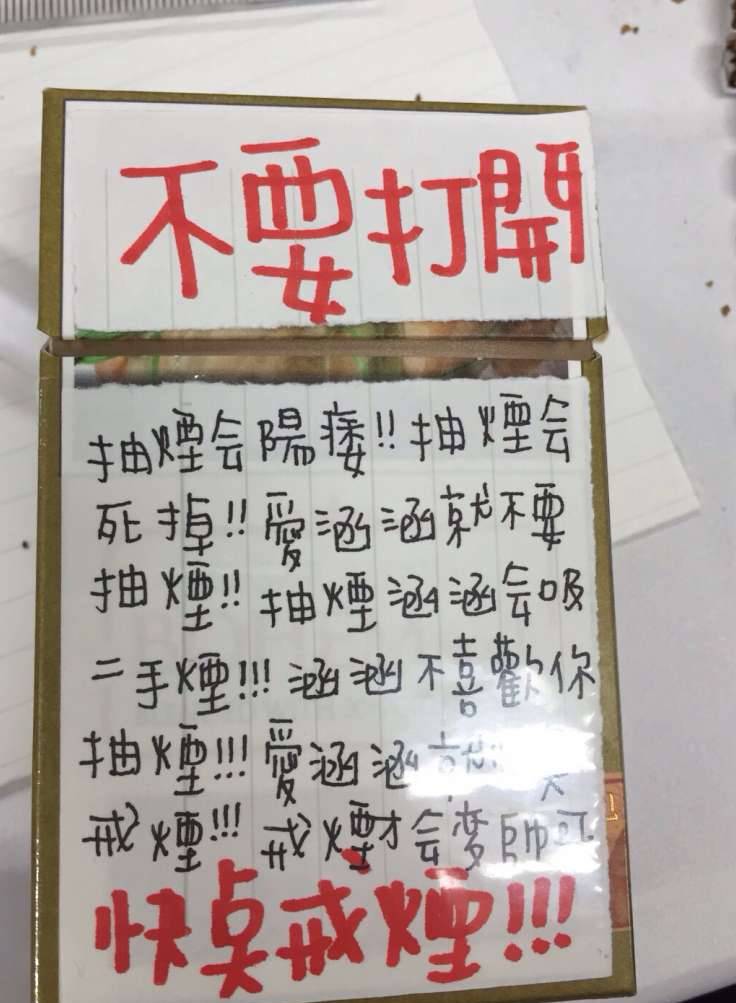 不要打開
抽煙会陽痿!!抽煙会
死掉!!愛涵涵就不要
抽煙!!抽煙涵涵会吸
二手煙!!!涵涵不喜歡你
抽煙!!!愛涵涵就
戒煙!!!戒煙才会变帥哥
快点戒煙!!!